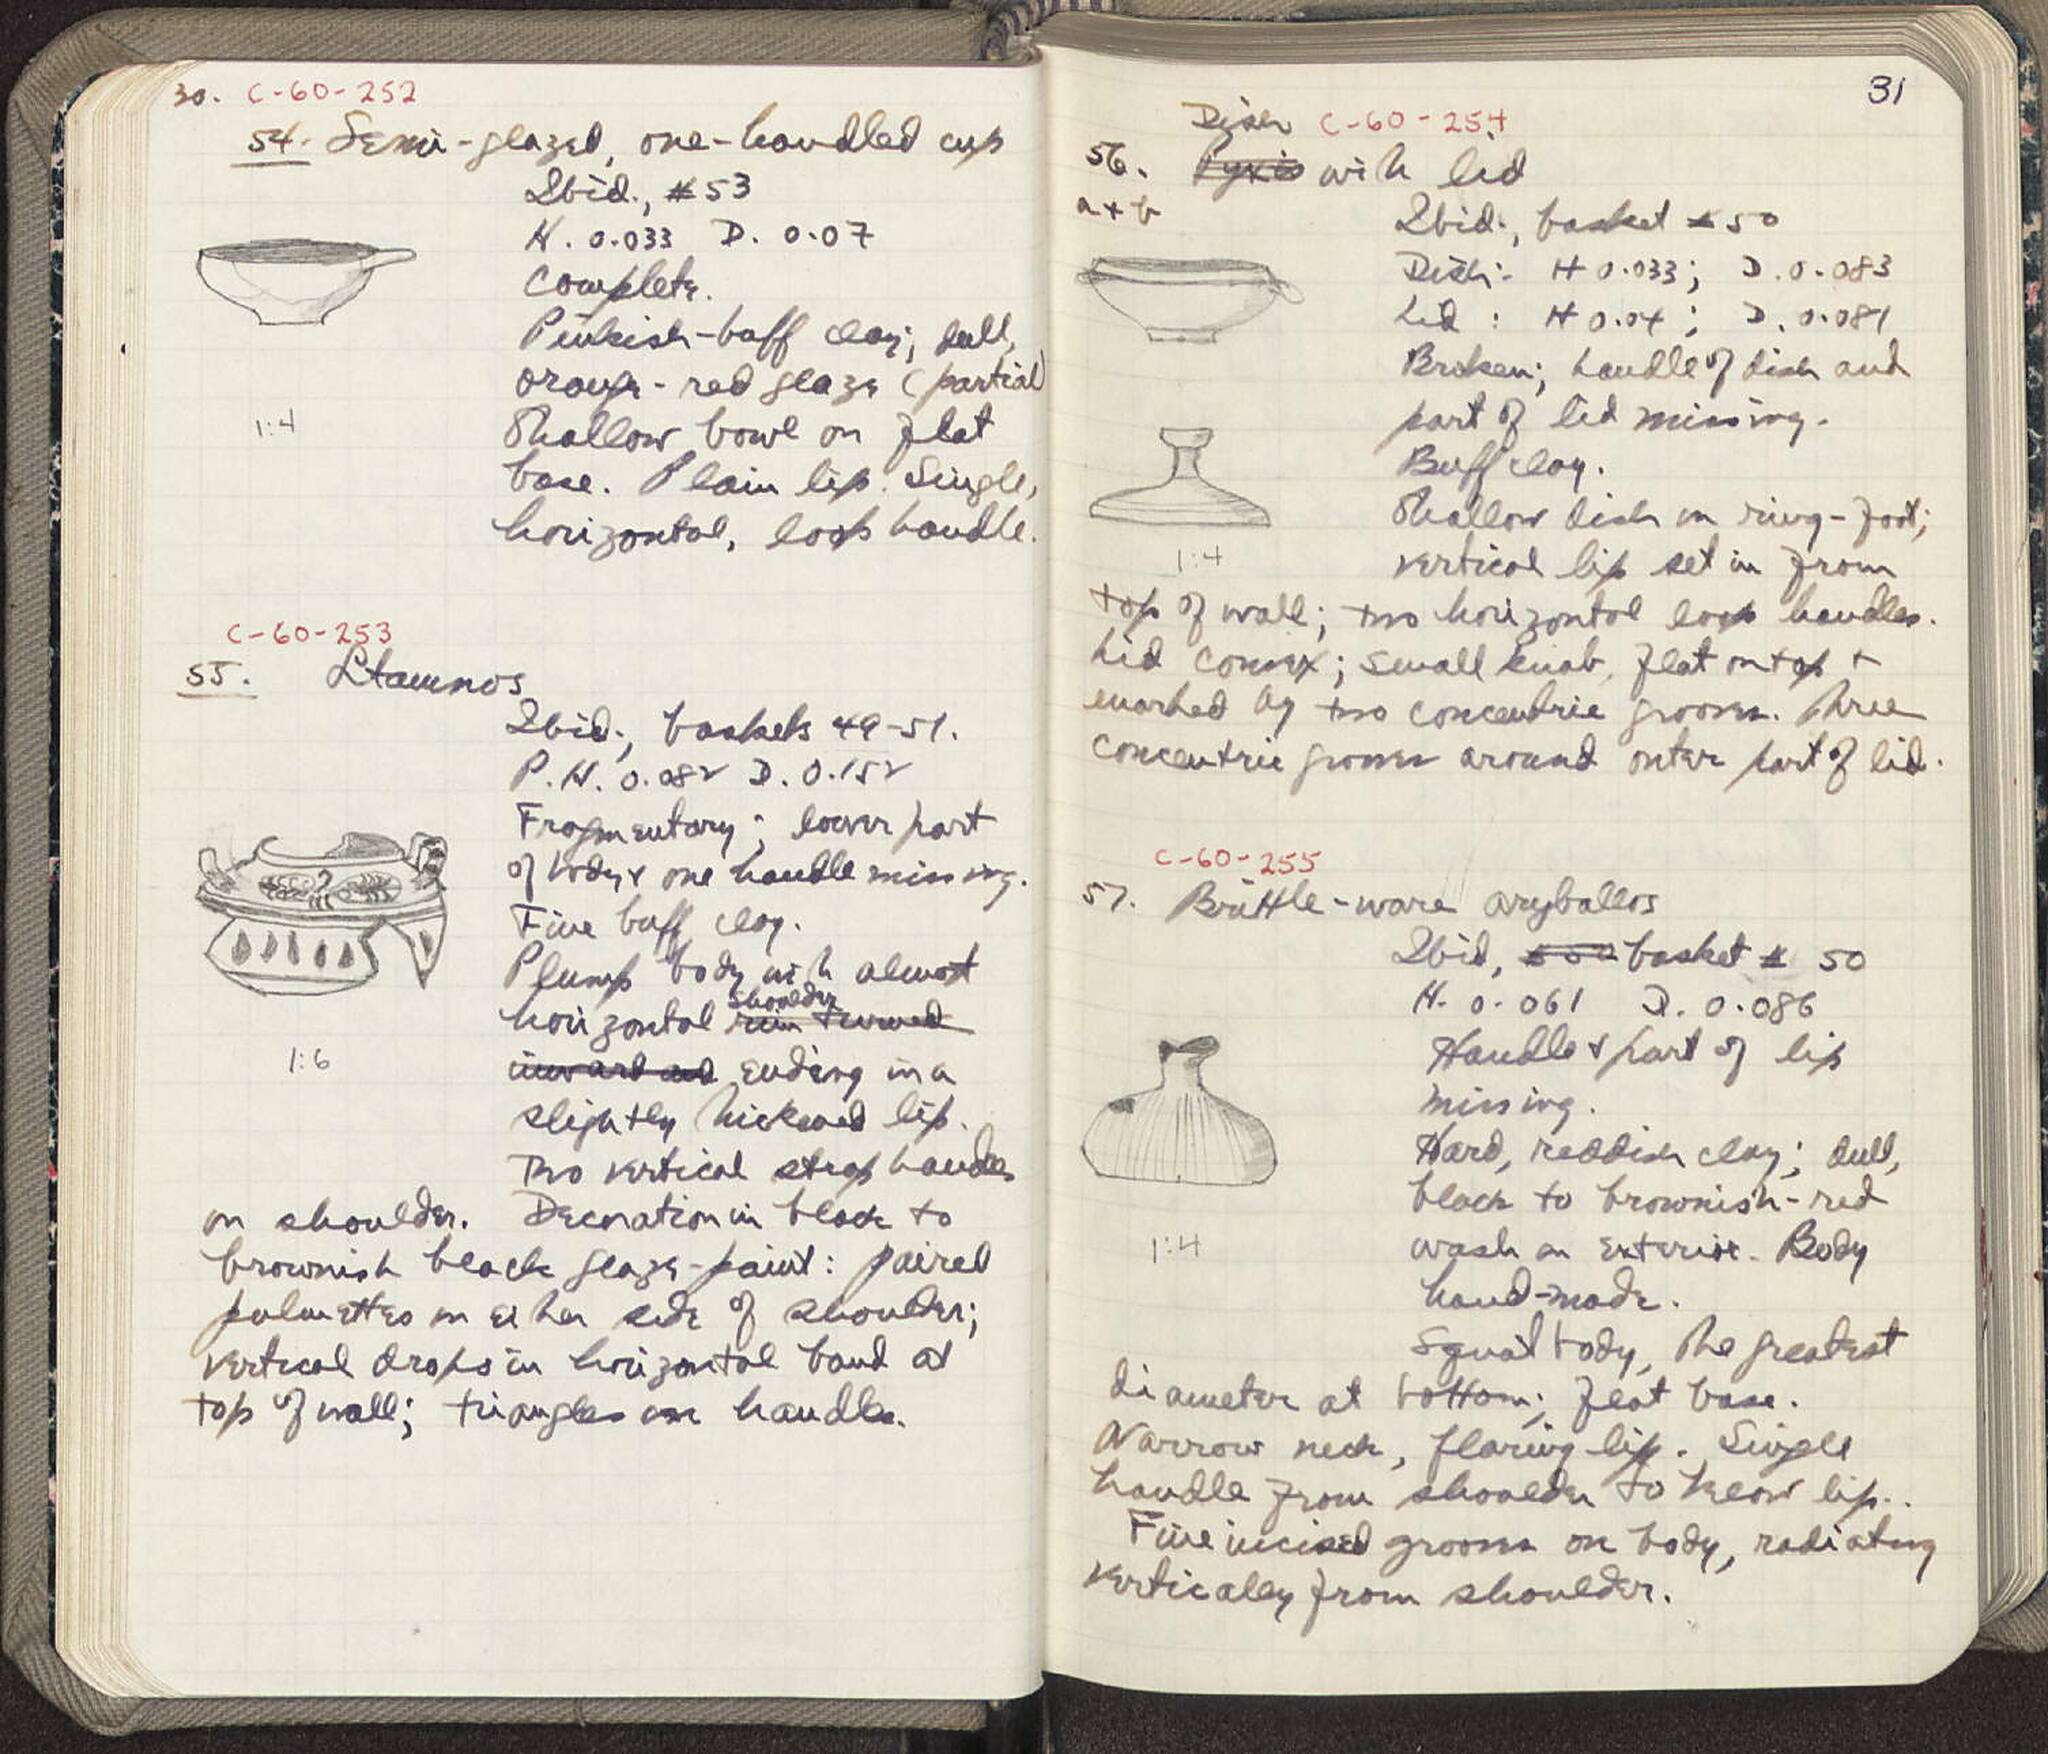 30. C-60-252
54. Semi-glazed, one-handled cup
Ibid., #53
H. 0.033 D. 0.07
Complete.
Pinkish-buff clay; dull,
orange-red glaze (partial)
Shallow bowl on flat
base. Plain lip. Single,
horizontal, loop handle.
1:4
C-60-253
55. Stamnos
Ibid., baskets 49-51.
P.H. 0.082 D. 0.152
Fragmentary; lower part
of body & one handle missing.
Fine buff clay.
Plump body with almost
shoulder
horizontal rim turned
inward and ending in a
slightly thickened lip.
Two vertical strap handles
1:6
on shoulder. Decoration in black to
brownish black glaze-paint: paired
palmettes on either side of shoulder;
vertical drops in horizontal band at
top of wall; triangles on handles.
31
Dish C-60-254
56. Pyxis with lid
a+b
Ibid., basket #50
Dish: H 0.033; D. 0.083
Lid: H 0.04; D. 0.081
Broken; handle of dish and
part of lid missing.
Buff clay.
Shallow dish on ring-foot;
vertical lip set in from
1:4
top of wall; two horizontal loop handles.
Lid convex; small knob, flat on top +
marked by two concentric grooves. Three
concentric grooves around outer part of lid.
C-60-255
57. Brittle-ware aryballos
Ibid, basket # 50
H. 0.061 D. 0.086
Handle & part of lip
missing.
Hard, reddish clay; dull,
black to brownish-red
wash on exterior. Body
hand-made.
1:4
Squat body, the greatest
diameter at bottom; flat base.
Narrow neck, flaring lip. Single
handle from shoulder to below lip.
Fine incised grooves on body, radiating
vertically from shoulder.